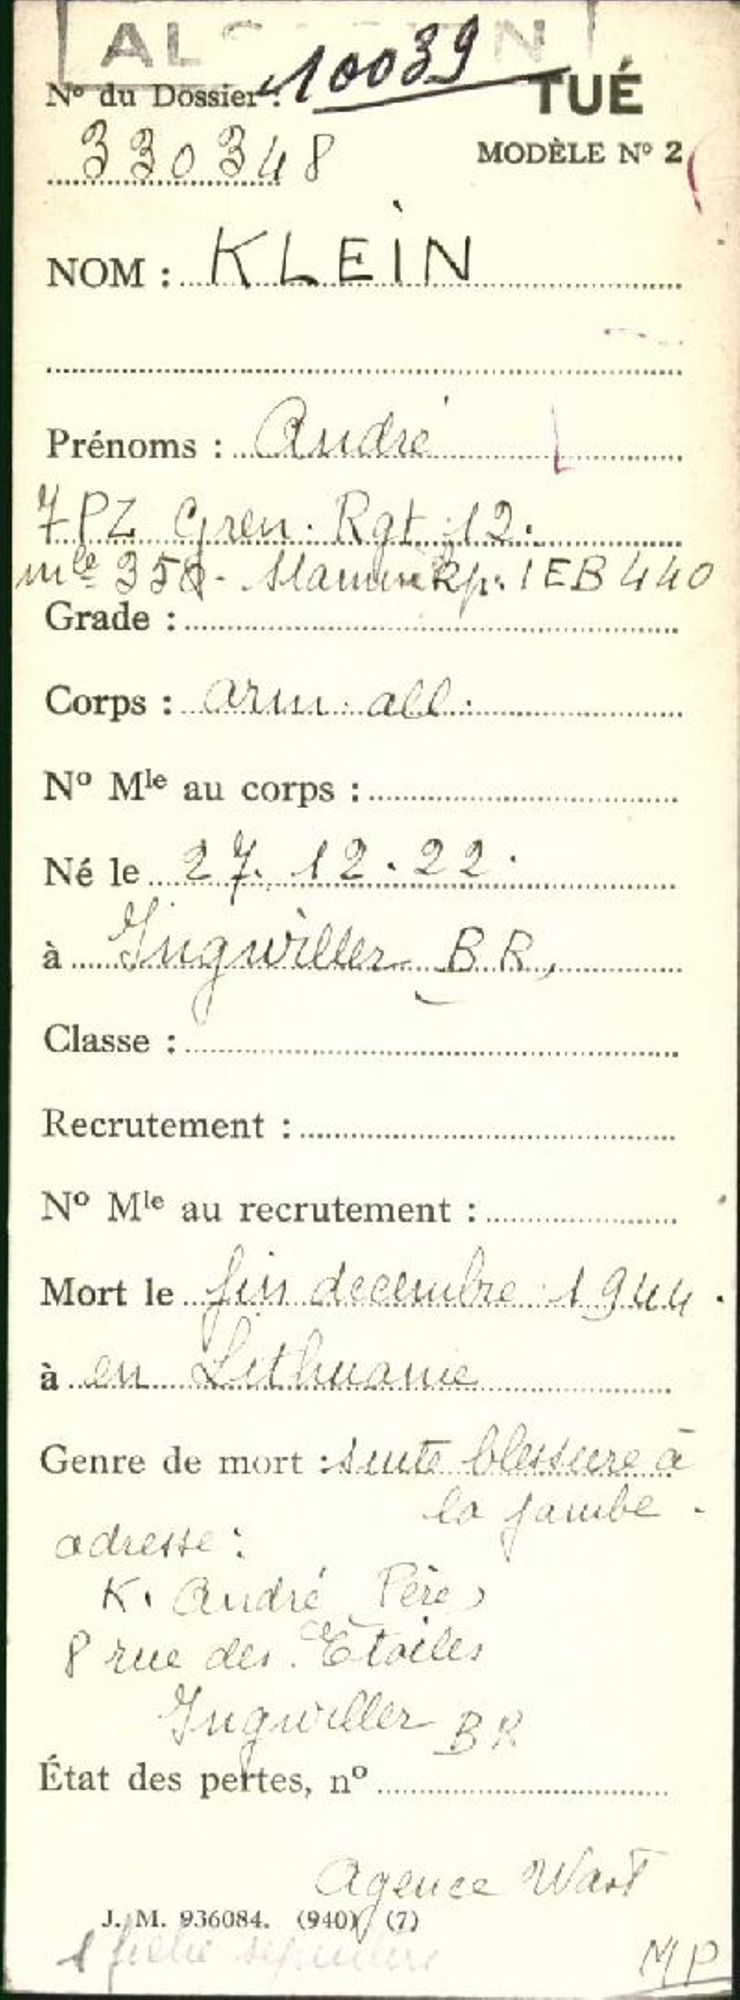 N° du Dossier : 10039
TUÉ
330348
MODÈLE N° 2
NOM : KLEIN
Prénoms : André
7 PZ Gren. Rgt 12.
mle 358 - Stammkp. 1EB 440
Grade :
Corps : arm. all.
N° Mle au corps :
Né le 27.12.22.
à Ingwiller B R
Classe :
Recrutement :
N° Mle au recrutement :
Mort le fin decembre 1944.
à en Lithuanie
Genre de mort : suite blessure à
la jambe.
adresse :
K. André Père
8 rue des Etoiles
Ingwiller BR
État des pertes, n°
Agence Wast
J. M. 936084. (940) (7)
1 fiche
MP